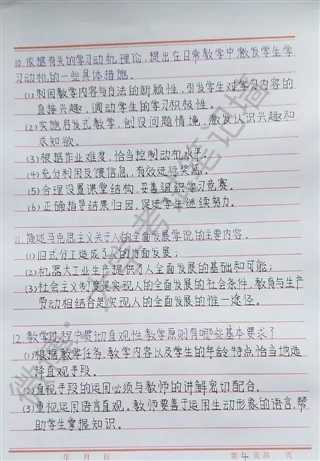 10.依据有关的学习动机理论,提出在日常教学中激发学生学
习动机的一些具体措施。
(1)利用教学内容与方法的新颖性,引发学生对学习内容的
直接兴趣,调动学生的学习积极性。
(2)实施启发式教学,创设问题情境,激发认识兴趣和
求知欲。
(3)根据作业难度,恰当控制动机水平。
(4)充分利用反馈信息,有效进行奖惩。
(5)合理设置课堂结构,妥善组织学习竞赛。
(6)正确指导结果归因,促使学生继续努力。
11.简述马克思主义关于人的全面发展学说的主要内容。
(1)旧式分工造成了人的片面发展;
(2)机器大工业生产提供了人全面发展的基础和可能;
(3)社会主义制度是实现人的全面发展的社会条件,教育与生产
劳动相结合是实现人的全面发展的唯一途径。
12.教学过程中贯彻直观性教学原则有哪些基本要求?
(1)根据教学任务、教学内容以及学生的年龄特点恰当地选
择直观手段。
(2)直观手段的运用必须与教师的讲解密切配合。
(3)重视运用语言直观,教师要善于运用生动形象的语言,帮
助学生掌握知识。
年 月 日
第4页